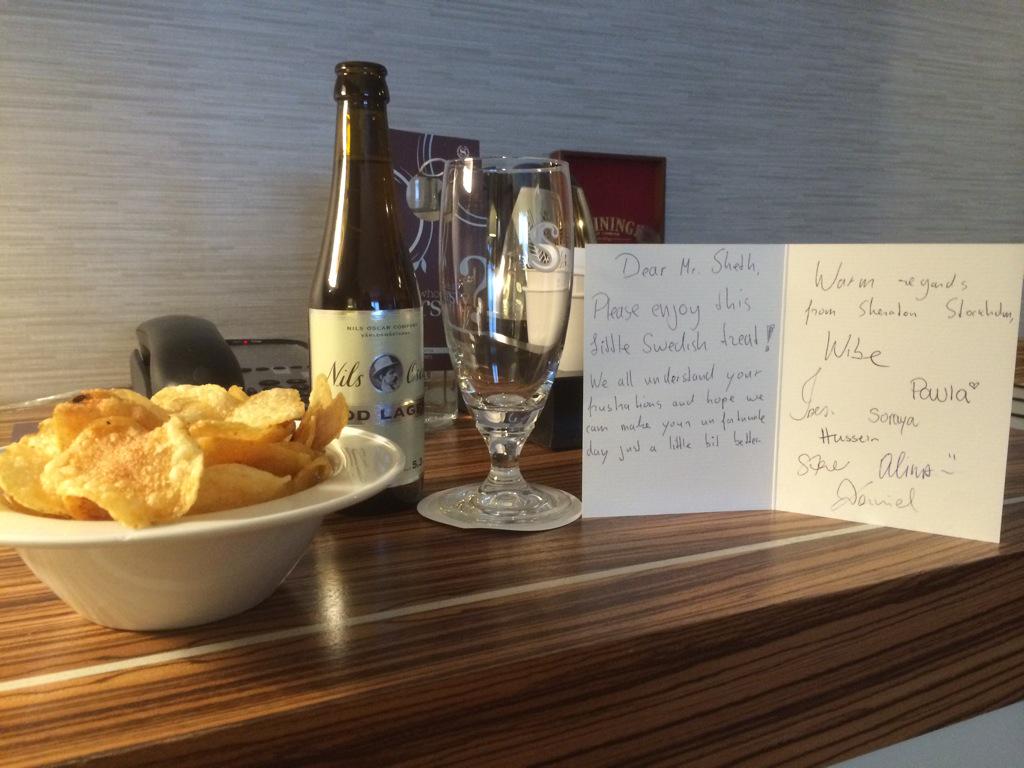 NILS OSCAR COMPANY
Nils
OD LAGE
5.3
S
NING
Dear Mr. Sheth,
Please enjoy this
little Swedish treat!
We all understand your
frustrations and hope we
can make your unfortunate
day just a little bit better.
Warm regards
from Sheraton Stockholm,
Wibe
Pawla
Soraya
Hussein
Alina
Daniel